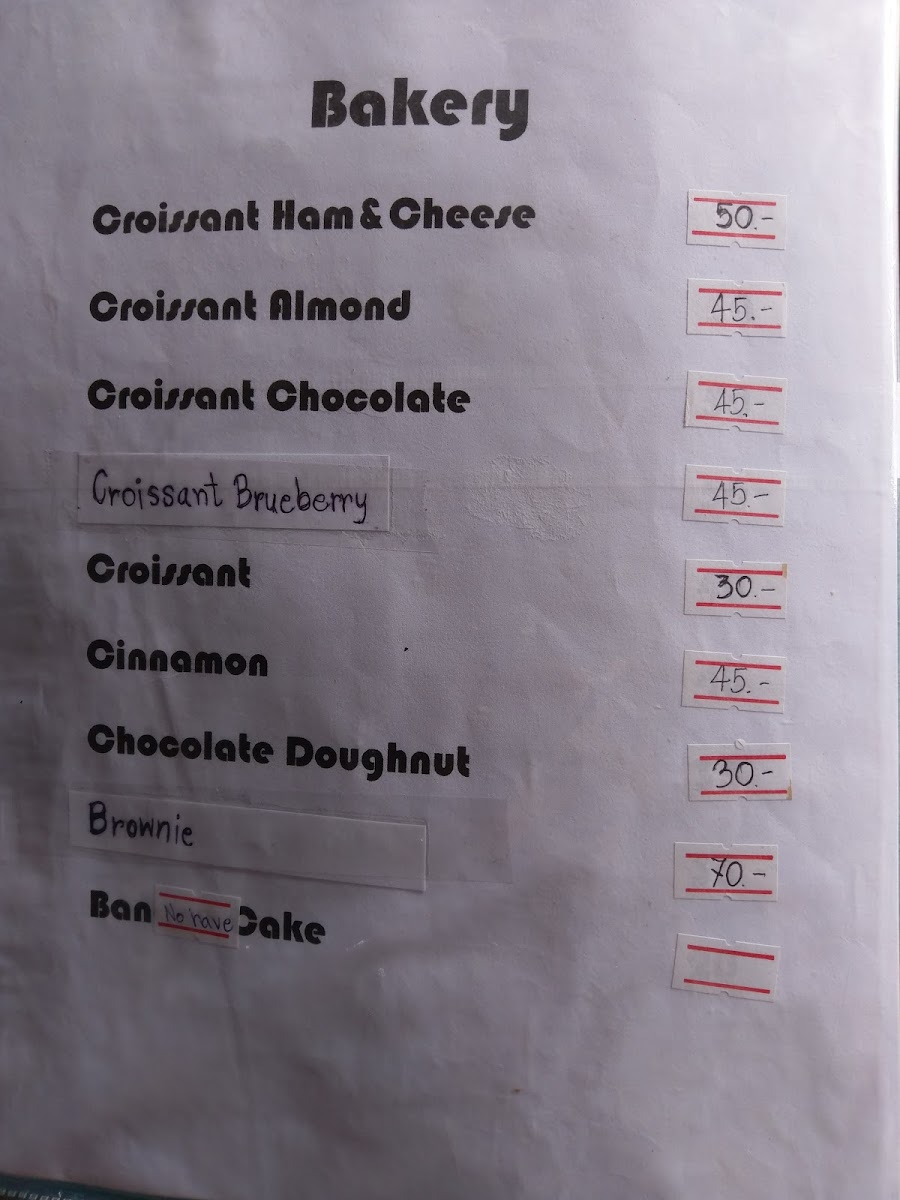 Bakery
Croissant Ham & Cheese 50.-
Croissant Almond 45.-
Croissant Chocolate 45.-
Croissant Brueberry 45.-
Croissant 30.-
Cinnamon 45.-
Chocolate Doughnut 30.-
Brownie 70.-
Ban No have Cake